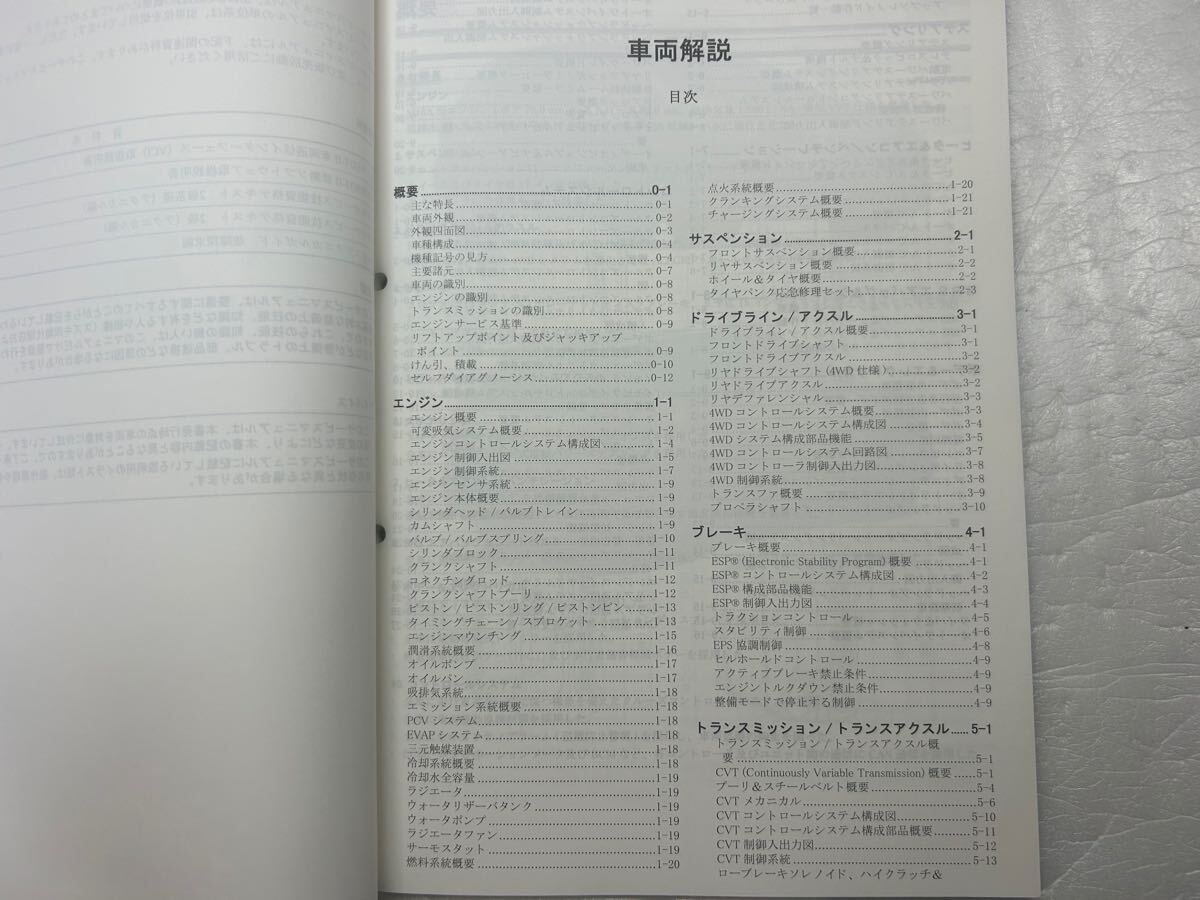 車両解説
目次
概要 0-1
主な特長 0-1
車両外観 0-2
外観四面図 0-3
車種構成 0-4
機種記号の見方 0-4
主要諸元 0-7
車両の識別 0-8
エンジンの識別 0-8
トランスミッションの識別 0-8
エンジンサービス基準 0-9
リフトアップポイント及びジャッキアップ
ポイント 0-9
けん引、積載 0-10
セルフダイアグノーシス 0-12
エンジン 1-1
エンジン概要 1-1
可変吸気システム概要 1-2
エンジンコントロールシステム構成図 1-4
エンジン制御入出図 1-5
エンジン制御系統 1-7
エンジンセンサ系統 1-9
エンジン本体概要 1-9
シリンダヘッド / バルブトレイン 1-9
カムシャフト 1-9
バルブ / バルブスプリング 1-10
シリンダブロック 1-11
クランクシャフト 1-11
コネクチングロッド 1-12
クランクシャフトプーリ 1-12
ピストン / ピストンリング / ピストンピン 1-13
タイミングチェーン / スプロケット 1-13
エンジンマウンチング 1-15
潤滑系統概要 1-16
オイルポンプ 1-17
オイルパン 1-17
吸排気系統 1-18
エミッション系統概要 1-18
PCV システム 1-18
EVAP システム 1-18
三元触媒装置 1-18
冷却系統概要 1-18
冷却水全容量 1-19
ラジエータ 1-19
ウォータリザーバタンク 1-19
ウォータポンプ 1-19
ラジエータファン 1-19
サーモスタット 1-19
燃料系統概要 1-20
点火系統概要 1-20
クランキングシステム概要 1-21
チャージングシステム概要 1-21
サスペンション 2-1
フロントサスペンション概要 2-1
リヤサスペンション概要 2-2
ホイール＆タイヤ概要 2-2
タイヤパンク応急修理セット 2-3
ドライブライン / アクスル 3-1
ドライブライン / アクスル概要 3-1
フロントドライブシャフト 3-1
フロントドライブアクスル 3-2
リヤドライブシャフト (4WD 仕様) 3-2
リヤドライブアクスル 3-2
リヤデファレンシャル 3-3
4WD コントロールシステム概要 3-3
4WD コントロールシステム構成図 3-4
4WD システム構成部品機能 3-5
4WD コントロールシステム回路図 3-7
4WD コントローラ制御入出力図 3-8
4WD 制御系統 3-8
トランスファ概要 3-9
プロペラシャフト 3-10
ブレーキ 4-1
ブレーキ概要 4-1
ESP® (Electronic Stability Program) 概要 4-1
ESP® コントロールシステム構成図 4-2
ESP® 構成部品機能 4-3
ESP® 制御入出力図 4-4
トラクションコントロール 4-5
スタビリティ制御 4-6
EPS 協調制御 4-8
ヒルホールドコントロール 4-9
アクティブブレーキ禁止条件 4-9
エンジントルクダウン禁止条件 4-9
整備モードで停止する制御 4-9
トランスミッション / トランスアクスル 5-1
トランスミッション / トランスアクスル概
要 5-1
CVT (Continuously Variable Transmission) 概要 5-1
プーリ＆スチールベルト概要 5-4
CVT メカニカル 5-6
CVT コントロールシステム構成図 5-10
CVT コントロールシステム構成部品概要 5-11
CVT 制御入出力図 5-12
CVT 制御系統 5-13
ローブレーキソレノイド、ハイクラッチ＆